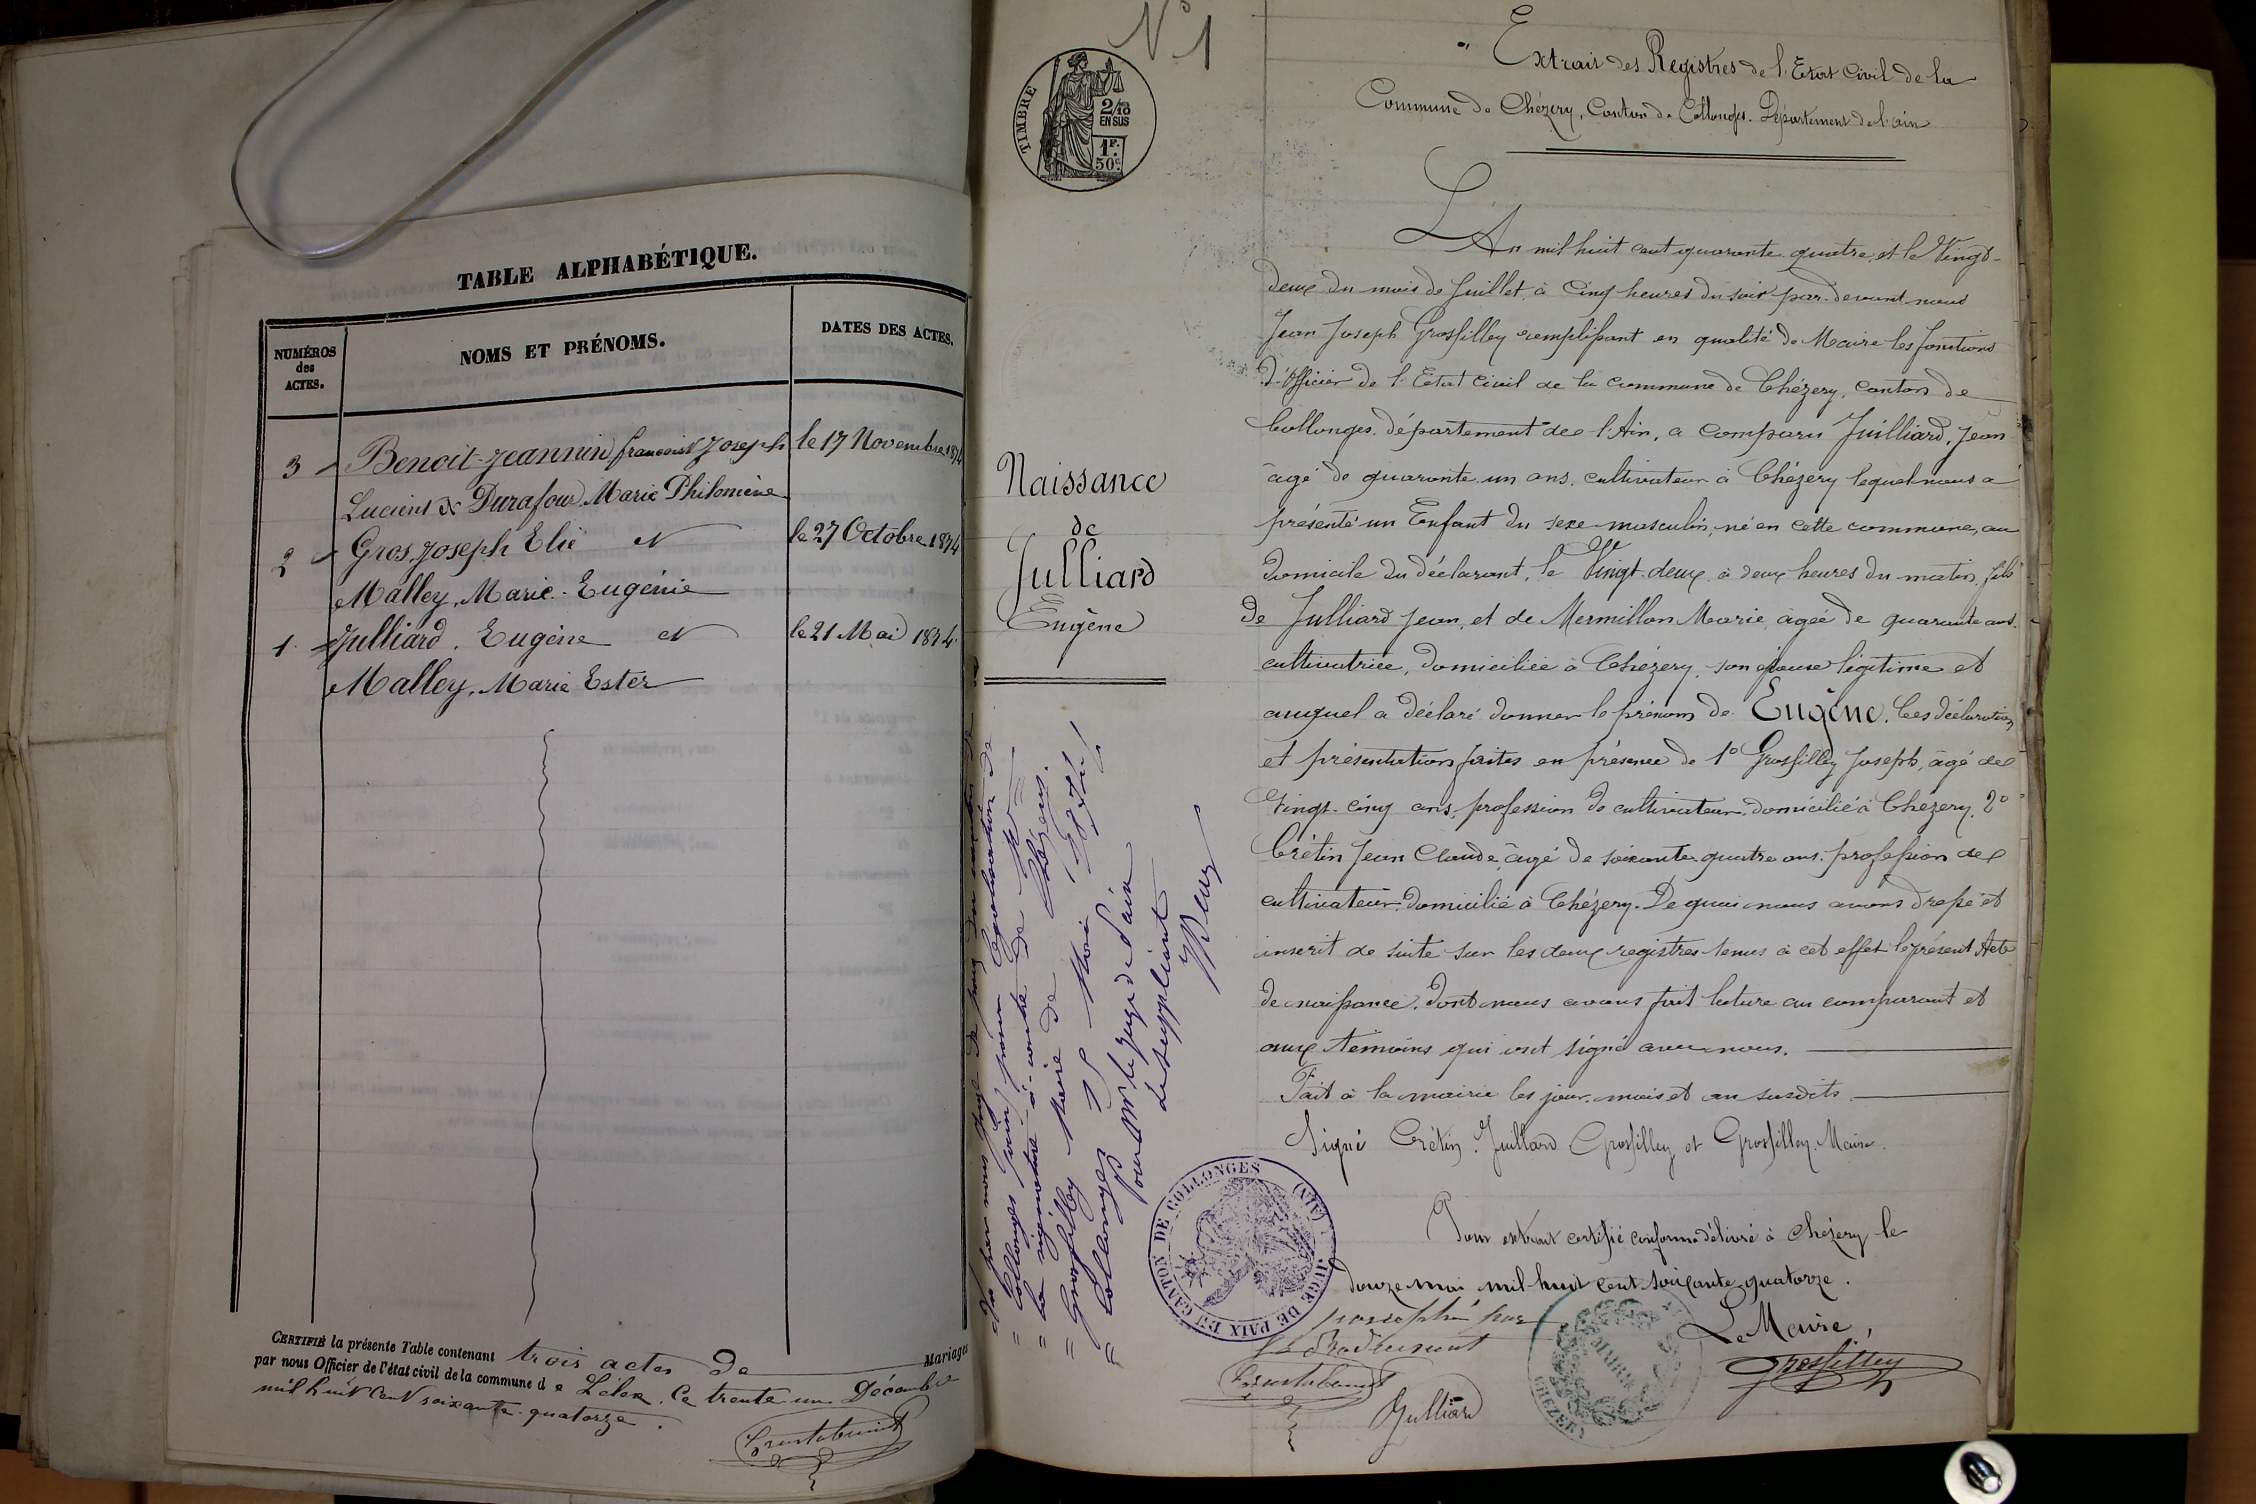 TABLE ALPHABÉTIQUE.
NUMÉROS des ACTES.
NOMS ET PRÉNOMS.
DATES DES ACTES.
3 Benoit-Jeannin françois Joseph le 17 Novembre 1874
Lucient & Durafour Marie Philomène
2 Gros Joseph Elie et le 27 Octobre 1874
Malley, Marie-Eugénie
1. Julliard. Eugène et le 21 Mai 1874.
Malley, Marie Ester
CERTIFIÉ la présente Table contenant trois actes de Mariages
par nous Officier de l'état civil de la commune de Lélex. Ce trente un Décembre
mil huit cent soixante-quatorze.
Nº 1
TIMBRE
2/10
EN SUS
1F.
50c.
Extrait des Registres de l'Etat Civil de la
Commune de Chézery, Canton de Collonges. Département de l'ain
Naissance
de
Julliard
Eugène
L'An mil huit cent quarante quatre et le Vingt-
deux du mois de Juillet à Cinq heures du soir par-devant nous
Jean Joseph Grosfilley remplissant en qualité de Maire les fonctions
d'Officier de l'Etat Civil de la commune de Chézery, canton de
Collonges département de l'Ain, a comparu Juilliard, Jean
âgé de quarante un ans, cultivateur à Chézery lequel nous a
présenté un Enfant du sexe masculin, né en cette commune, au
domicile du déclarant, le Vingt-deux à deux heures du matin, fils
de Julliard Jean, et de Mermillon Marie, âgée de quarante ans.
cultivatrice, domiciliée à Chézery, son épouse légitime et
auquel a déclaré donner le prénom de Eugène. Ces déclaration
et présentation faites en présence de 1º Grosfilley Joseph, âgé de
Vingt-cinq ans, profession de cultivateur, domicilié à Chézery, 2º
Crétin Jean Claude, âgé de soixante quatre ans, profession de
cultivateur, domicilié à Chézery. De quoi nous avons dressé et
inscrit de suite sur les deux registres tenus à cet effet le présent Acte
de naissance. Dont nous avons fait lecture au comparant et
aux témoins qui ont signé avec nous.
Fait à la mairie les jour, mois et an susdits
Signé Crétin. Juilliard Grosfilley et Grosfilley Maire.
Pour extrait certifié conforme délivré à Chézery le
douze mai mil huit cent soixante quatorze.
Le Maire,
Grosfilley
Julliard
Vu par nous Juge de paix du canton de
Collonges (ain) pour légalisation de
la signature ci-contre de Mr
Grosfilley Maire de Chézery.
Collonges 15 Mai 1874
Pour Mr le Juge de Paix
Le suppléant
JUGE DE PAIX DU CANTON DE COLLONGES (AIN)
MAIRIE
CHEZERY